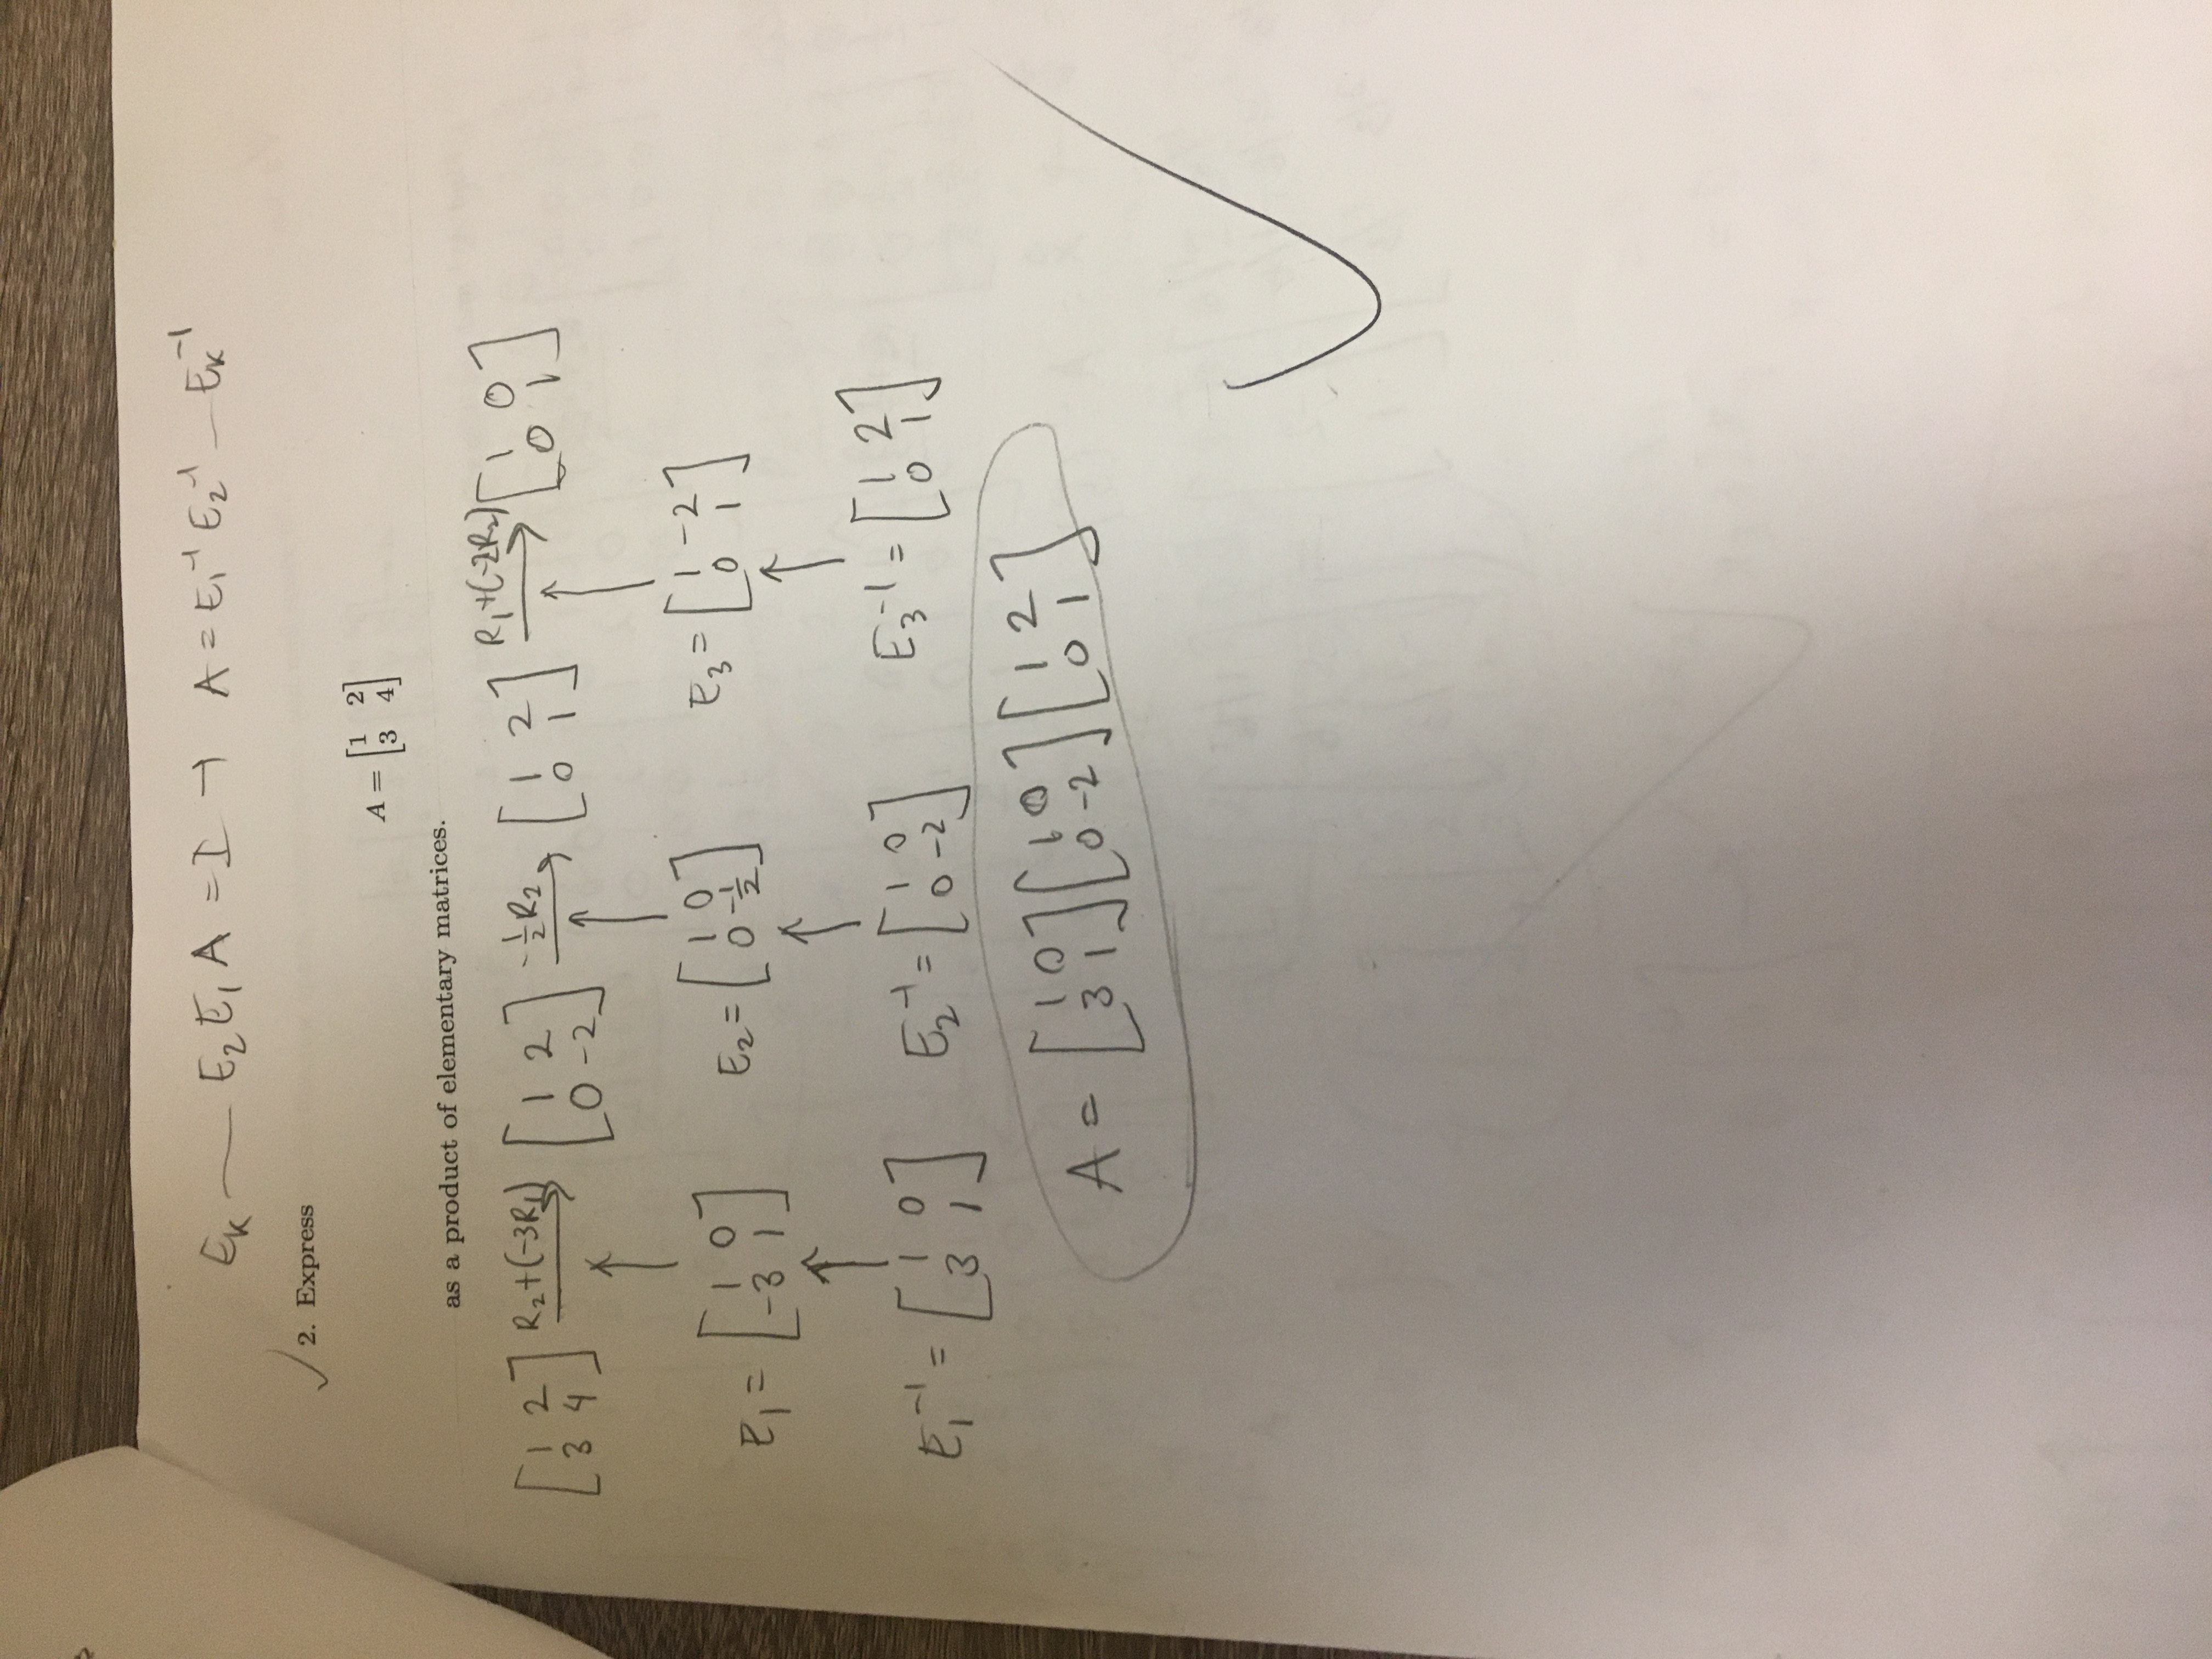 E_k — E_2 E_1 A = I → A = E_1^-1 E_2^-1 — E_k^-1
2. Express
A = [1 2; 3 4]
as a product of elementary matrices.
[1 2; 3 4] R_2+(-3R_1) → [1 2; 0 -2] -1/2 R_2 → [1 2; 0 1] R_1+(-2R_2) → [1 0; 0 1]
E_1 = [1 0; -3 1] E_2 = [1 0; 0 -1/2] E_3 = [1 -2; 0 1]
E_1^-1 = [1 0; 3 1] E_2^-1 = [1 0; 0 -2] E_3^-1 = [1 2; 0 1]
A = [1 0; 3 1][1 0; 0 -2][1 2; 0 1]